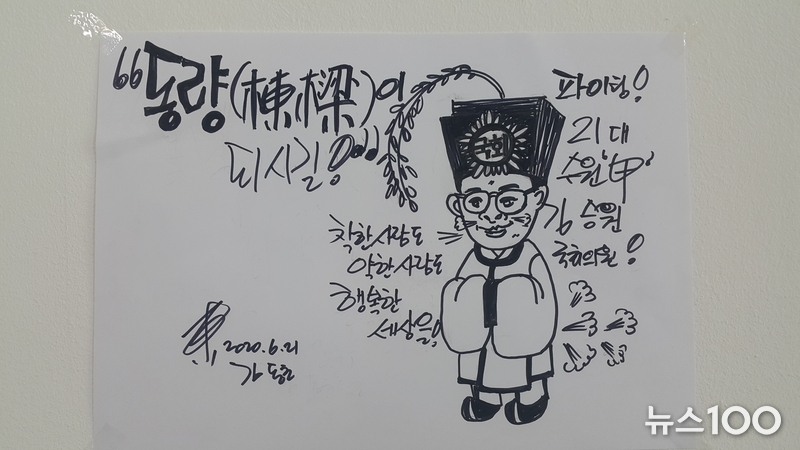 "동량(棟樑)이
되시길!"
국회
파이팅!
21대
수원'甲'
김승원
국회의원!
착한사람도
약한사람도
행복한
세상을!
2020.6.21
뉴스100